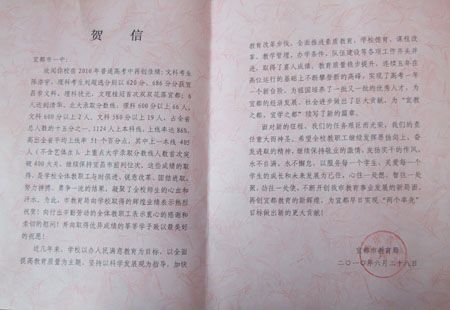 贺 信
宜都市一中：
欣闻你校在2010年普通高考中再创佳绩：文科考生
陈浩宇、理科考生刘超逸分别以620分、686分分获宜
昌市文科、理科状元，文理桂冠首次双双花落宜都；6
人达到清华、北大录取分数线；理科600分以上66人，
文科600分以上2人，文科580分以上19人，占全省
总人数的十五分之一，1124人上本科线，上线率达86%，
高出全省平均上线率51个百分点，其中上一本线405
人（不含艺体生）上重点大学录取分数线人数首次突
破400大关，继续保持宜昌市前列位次，这些成绩的取
得，是学校全体教职工与时俱进、锐意改革、团结进取、
努力拼搏、勇争一流的结果，凝聚了全校师生的心血和
汗水。为此，市教育局向学校取得的辉煌业绩表示热烈
祝贺！向付出辛勤劳动的全体教职工表示衷心的感谢和
亲切的慰问！并向取得优异成绩的莘莘学子致以最美好
的祝愿！
近几年来，学校以办人民满意教育为目标，以全面
提高教育质量为主题，坚持以科学发展观为指导，加快
教育改革步伐，全面推进素质教育，学校德育、课程改
革、教学管理、办学条件、队伍建设等各项工作齐头并
进，取得了喜人成绩，教育质量稳步提升，连续五年在
高位运行的基础上不断攀登新的高峰，实现了高考一年
一个新台阶，为祖国培养了一批又一批的优秀人才，为
宜都的经济发展、社会进步做出了巨大贡献，为“宜教
之都、宜学之都”续写了新的篇章。
面对新的征程，我们的任务艰巨而光荣，我们的责
任重大而神圣。希望全校教职工继续发扬昂扬向上、奋
发进取的精神，继续保持敬业的激情、发扬实干的作风，
永不自满，永不懈怠，以服务每一个学生，关爱每一个
学生的成长和未来发展为己任，心往一处想，智往一处
谋，劲往一处使，不断开创我市教育事业发展的新局面，
再创宜都教育的新辉煌，为宜都早日实现“两个率先”
目标做出新的更大贡献！
宜都市教育局
二〇一〇年六月二十八日